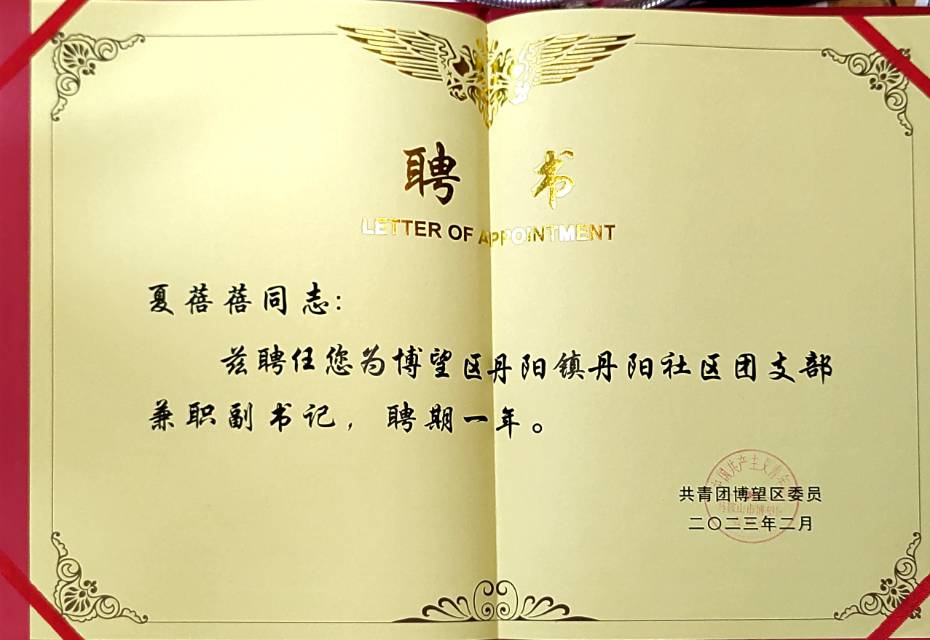 聘 书
LETTER OF APPOINTMENT
夏蓓蓓同志:
兹聘任您为博望区丹阳镇丹阳社区团支部
兼职副书记，聘期一年。
共青团博望区委员
二〇二三年二月